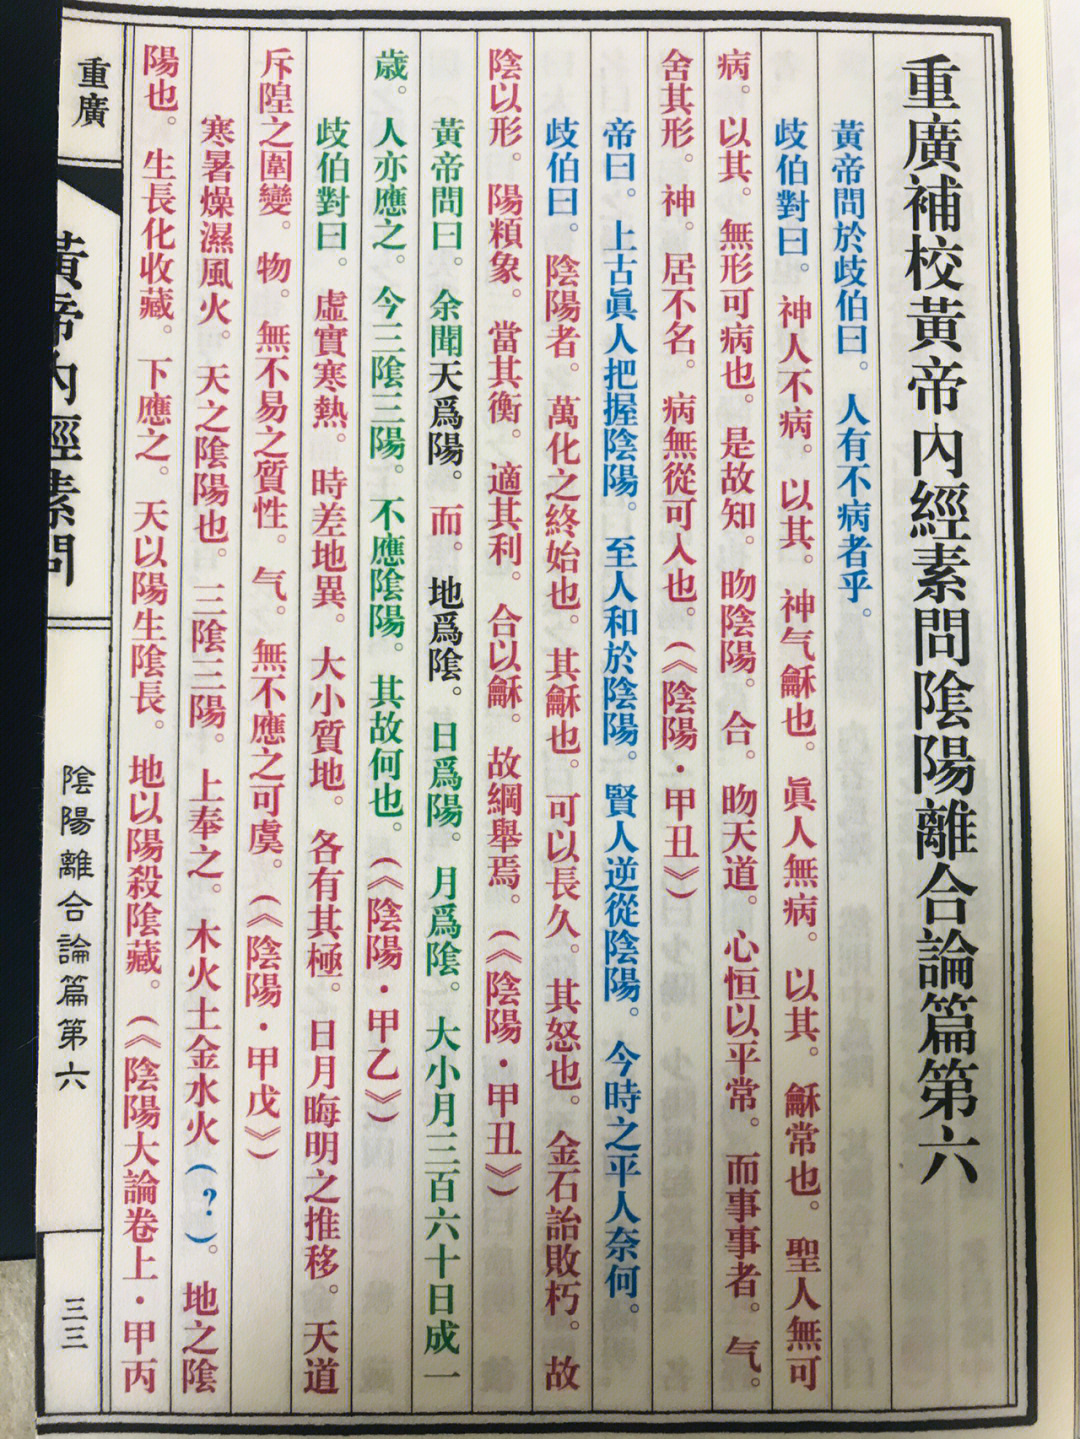 重廣補校黃帝內經素問陰陽離合論篇第六
黃帝問於歧伯曰。人有不病者乎。
歧伯對曰。神人不病。以其。神气龢也。眞人無病。以其。龢常也。聖人無可
病。以其。無形可病也。是故知。昒陰陽。合。昒天道。心恒以平常。而事事者。气。
舍其形。神。居不名。病無從可入也。（《陰陽·甲丑》）
帝曰。上古眞人把握陰陽。至人和於陰陽。賢人逆從陰陽。今時之平人奈何。
歧伯曰。陰陽者。萬化之終始也。其龢也。可以長久。其怒也。金石詒敗朽。故
陰以形。陽頪象。當其衡。適其利。合以龢。故綱舉焉。（《陰陽·甲丑》）
黃帝問曰。余聞天爲陽。而。地爲陰。日爲陽。月爲陰。大小月三百六十日成一
歲。人亦應之。今三陰三陽。不應陰陽。其故何也。（《陰陽·甲乙》）
歧伯對曰。虛實寒熱。時差地異。大小質地。各有其極。日月晦明之推移。天道
斥隍之圍變。物。無不易之質性。气。無不應之可虞。（《陰陽·甲戊》）
寒暑燥濕風火。天之陰陽也。三陰三陽。上奉之。木火土金水火（?）。地之陰
陽也。生長化收藏。下應之。天以陽生陰長。地以陽殺陰藏。（《陰陽大論卷上·甲丙
重廣
黃帝內經素問
陰陽離合論篇第六
三三